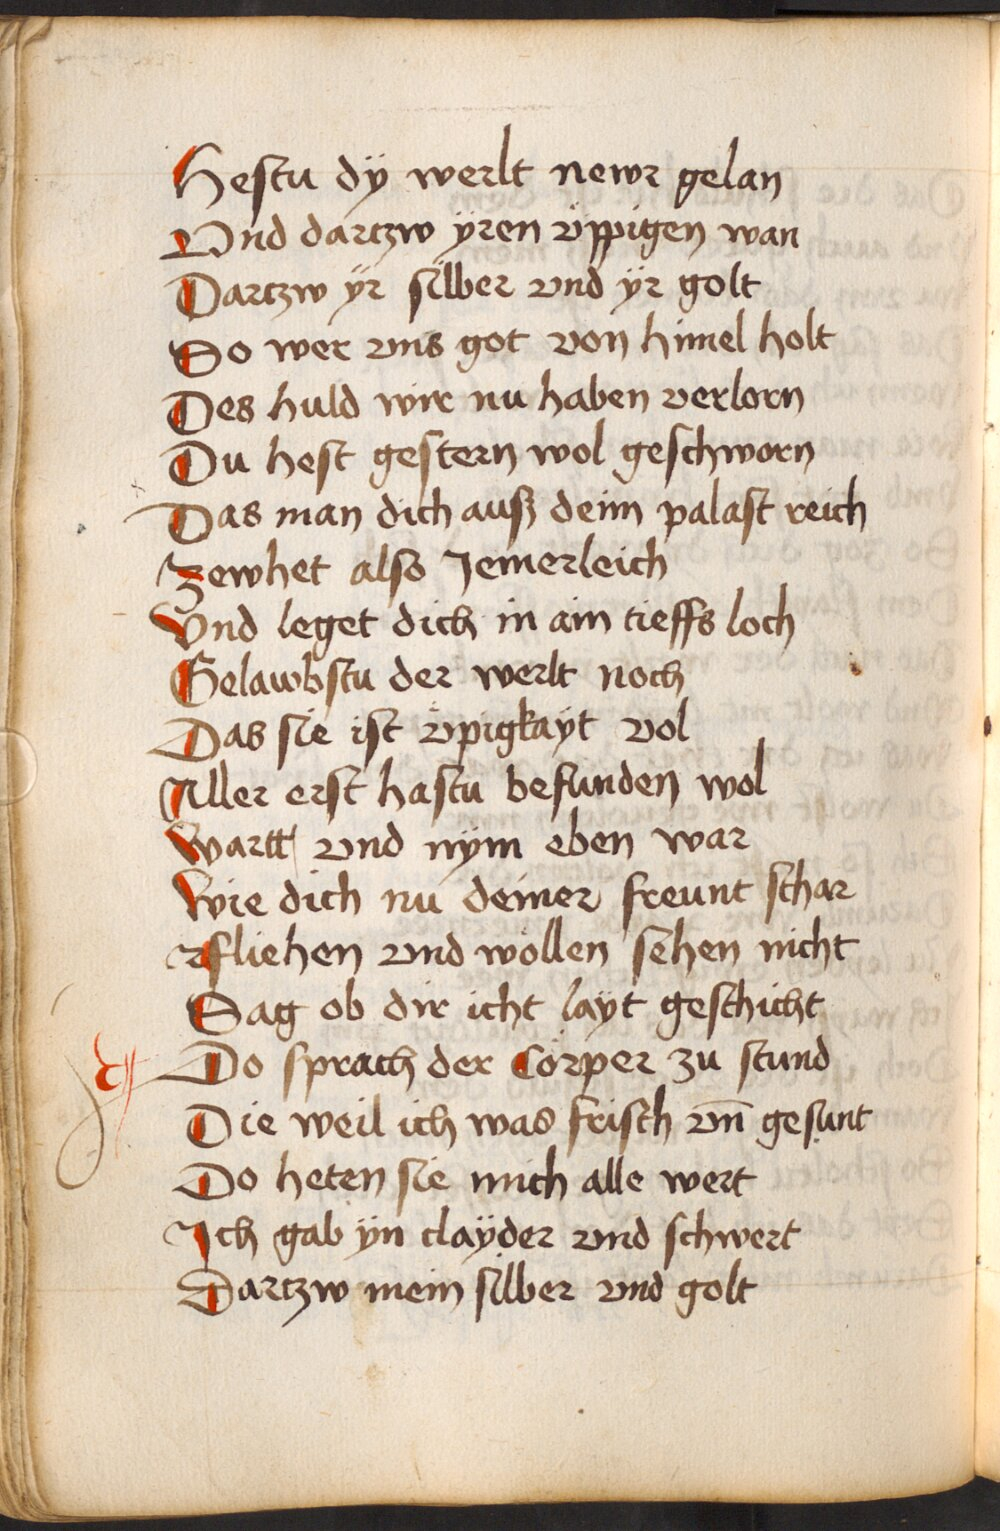 Hestu dÿ werlt newr gelan
Vnd dartzw ÿren vͤppigen wan
Dartzw ÿr silber vnd ÿr golt
So wer vns got von himel holt
Des huld wir nu haben verlorn
Du hest gestern wol geschworn
Das man dich auß deim palast reich
Zewhet also Jemerleich
Vnd leget dich in ain tieffs loch
Gelawbstu der werlt noch
Das sie ist vͤpigkaÿt vol
Aller erst hastu befunden wol
Wartt vnd nÿm eben war
Wie dich nu deiner freunt schar
fliehen vnd wöllen sehen nicht
Sag ob dir icht laÿt geschicht
Do sprach der Cörper zu stund
Die weil ich was frisch vn̄ gesunt
Do heten sie mich alle wert
Ich gab ÿn claÿder vnd schwert
Dartzw mein silber vnd golt